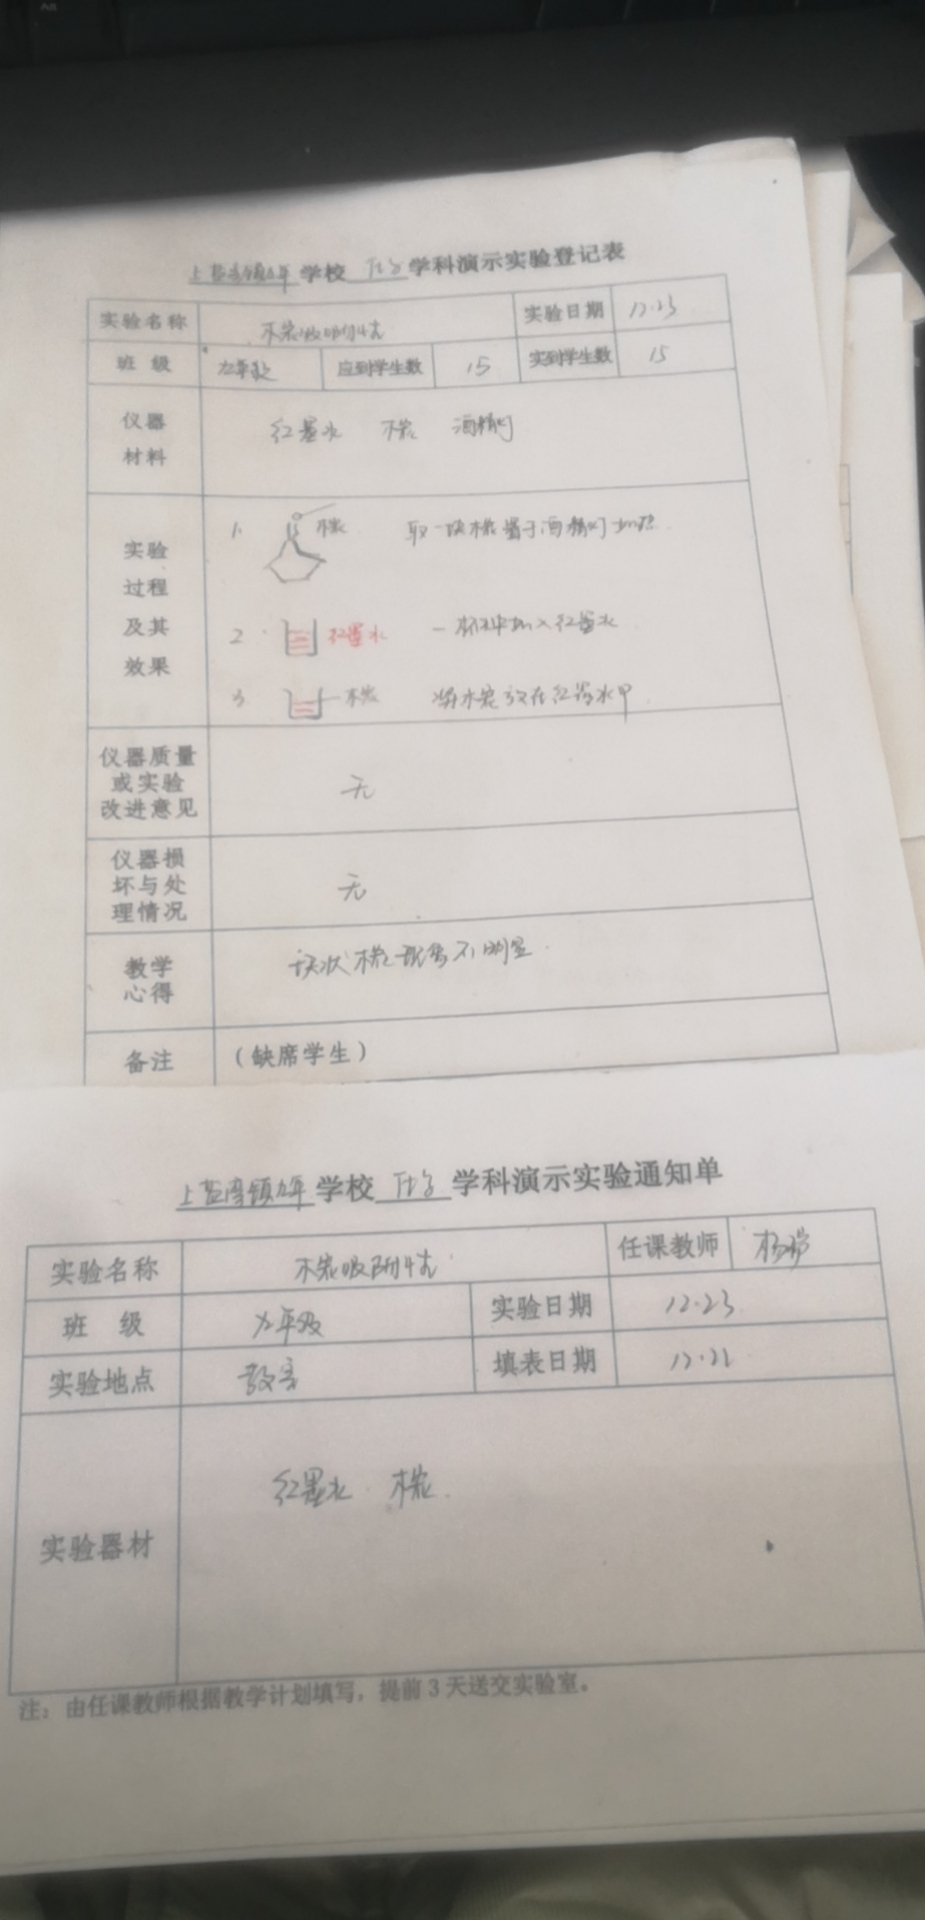 上盐湾镇九年学校 化学 学科演示实验登记表
实验名称 木炭吸附性 实验日期 12.23
班 级 九年级 应到学生数 15 实到学生数 15
仪器材料 红墨水 木炭 酒精灯
实验过程及其效果
1. 木炭 取一块木炭置于酒精灯加热
2. 红墨水 一杯中加入红墨水
3 木炭 将木炭放在红墨水中
仪器质量或实验改进意见 无
仪器损坏与处理情况 无
教学心得 块状木炭现象不明显.
备注 (缺席学生)
上盐湾镇九年学校 化学 学科演示实验通知单
实验名称 木炭吸附性 任课教师
班 级 九年级 实验日期 12.23
实验地点 教室 填表日期
实验器材 红墨水 木炭.
注：由任课教师根据教学计划填写，提前3天送交实验室。